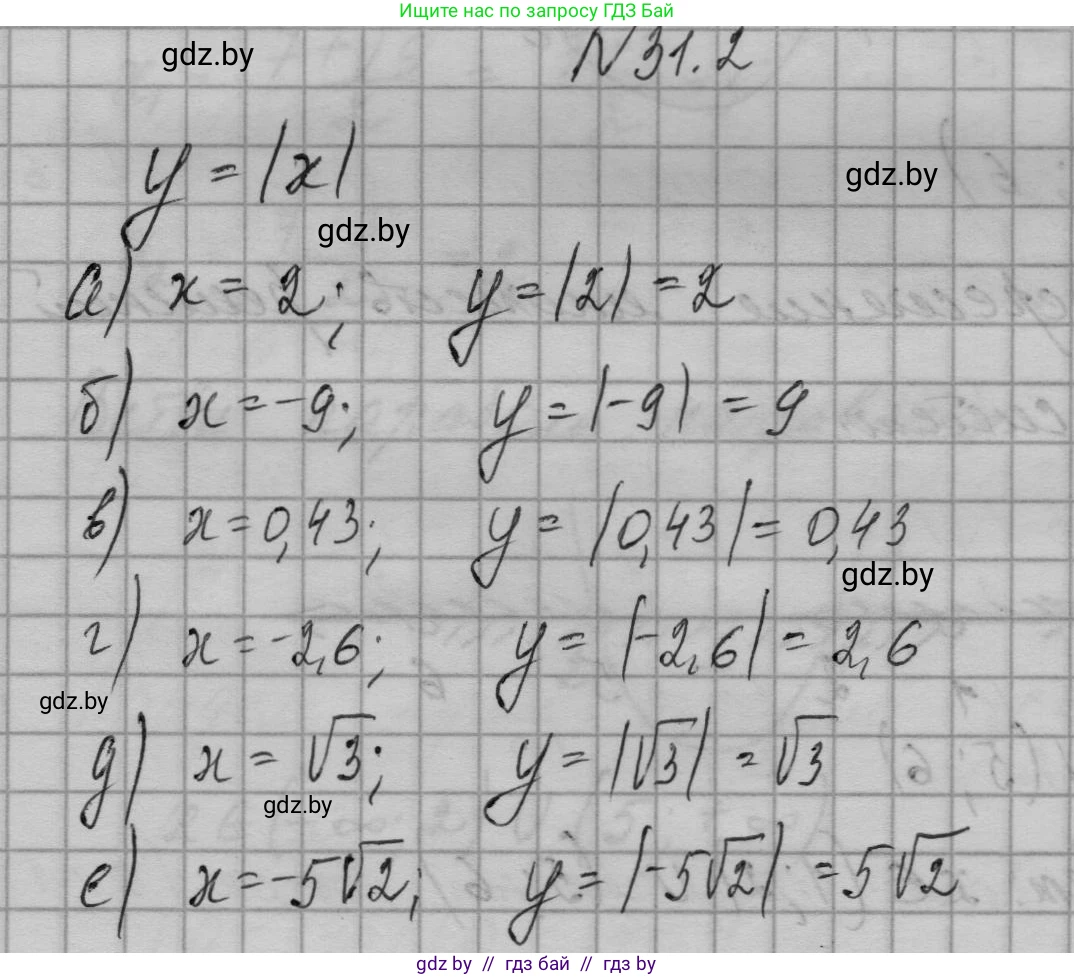 Ищите нас по запросу ГДЗ Бай
gdz.by
N 31.2
y = |x|
gdz.by
gdz.by
а) x = 2; y = |2| = 2
б) x = -9; y = |-9| = 9
в) x = 0,43; y = |0,43| = 0,43
gdz.by
г) x = -2,6; y = |-2,6| = 2,6
gdz.by
д) x = √3; y = |√3| = √3
gdz.by
е) x = -5√2; y = |-5√2| = 5√2
gdz by // гдз бай // гдз by